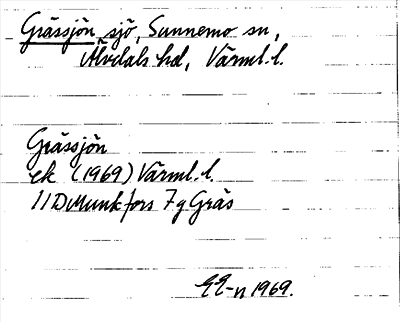 Grässjön, sjö, Sunnemo sn,
Älvdals hd, Värml. l.
Grässjön
ek (1969) Värml. l.
11D Munkfors 7g Gräs
EE-n 1969.